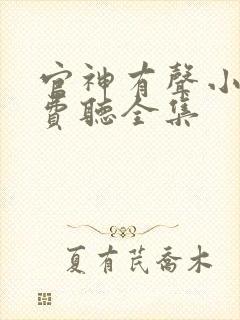 官神有聲小
費聽全集
夏有芪喬木